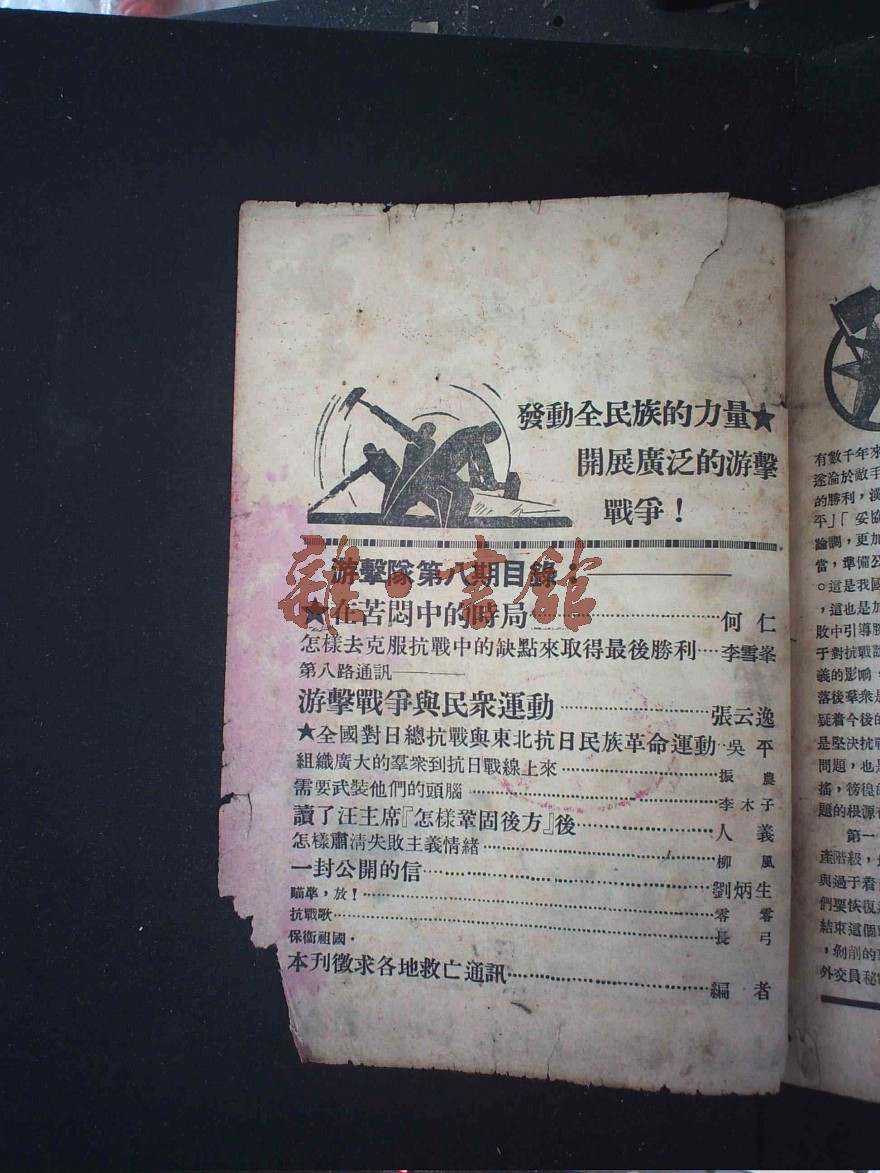 發動全民族的力量★
開展廣泛的游擊
戰爭！
游擊隊第八期目錄：
★在苦悶中的時局 何仁
怎樣去克服抗戰中的缺點來取得最後勝利 李雪峯
第八路通訊
游擊戰爭與民衆運動 張云逸
★全國對日總抗戰與東北抗日民族革命運動 吳平
組織廣大的羣衆到抗日戰線上來 振農
需要武裝他們的頭腦 李木子
讀了汪主席『怎樣鞏固後方』後 人義
怎樣肅清失敗主義情緒 柳風
一封公開的信 劉炳生
瞄準，放！ 零零
抗戰歌 長弓
保衞祖國
本刊徵求各地救亡通訊 編者
雜·書館
有數千年來
遂淪於敵手
的勝利，漢
平」「妥協
論調，更加
當，準備公
。這是我國
，這也是加
敗中引導勝
于對抗戰認
義的影响，
落後羣衆是
疑着今後的
是堅決抗戰
問題，也是
搖，徬徨的
題的根源
第一
產階級，
與過于着
們要恢復
結束這個
，剝削的
外交員秘